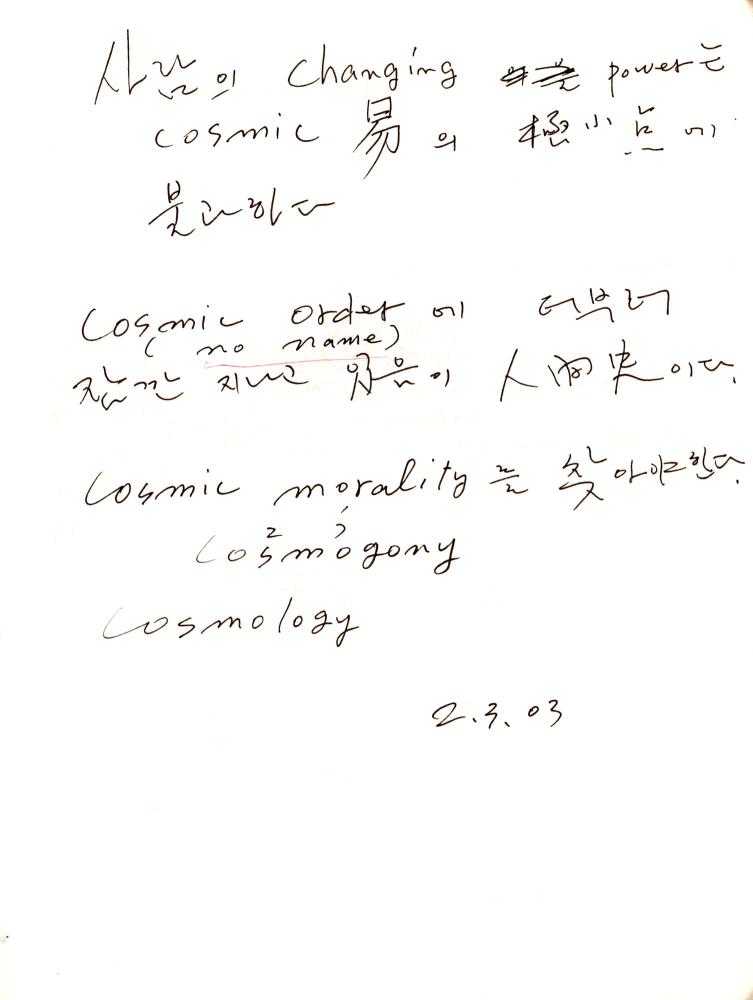 사람의 changing power는
cosmic 易의 極小点에
불과하다
cosmic order에 더부러
(no name)
잠깐 지나고 있음이 人間史이다.
cosmic morality를 찾아야한다.
cosmogony
cosmology
2.3.03